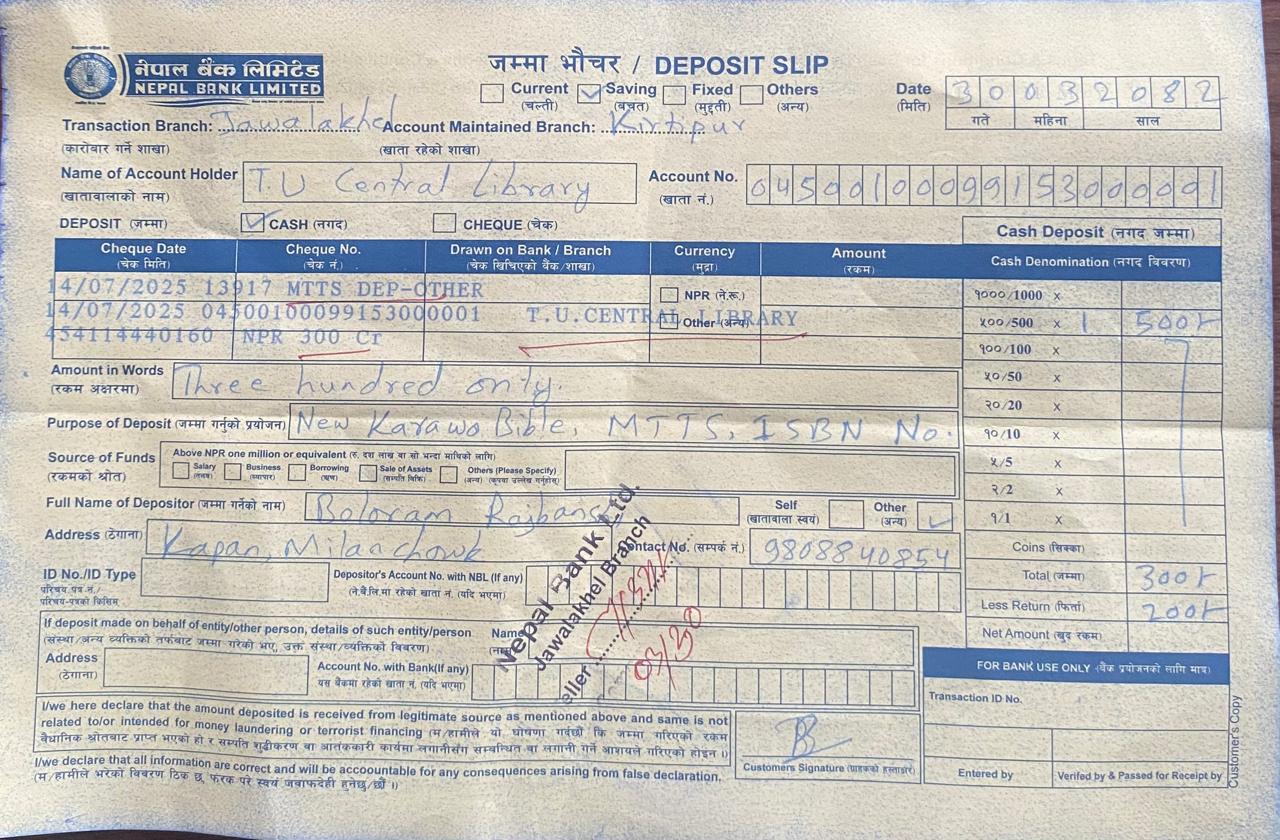 नेपाल बैंक लिमिटेड
NEPAL BANK LIMITED
जम्मा भौचर / DEPOSIT SLIP
Current Saving Fixed Others
(चल्ती) (बचत) (मुद्दती) (अन्य)
Date 30032082
(मिति) गते महिना साल
Transaction Branch: Jawalakhel Account Maintained Branch: Kirtipur
(कारोबार गर्ने शाखा) (खाता रहेको शाखा)
Name of Account Holder T.U Central Library Account No.
(खातावालाको नाम) (खाता नं.)
DEPOSIT (जम्मा) CASH (नगद) CHEQUE (चेक) Cash Deposit (नगद जम्मा)
Cheque Date Cheque No. Drawn on Bank / Branch Currency Amount Cash Denomination (नगद विवरण)
(चेक मिति) (चेक नं.) (चेक खिचिएको बैंक/शाखा) (मुद्रा) (रकम)
14/07/2025 13917 MTTS DEP-OTHER NPR (ने.रू.)
14/07/2025 04500100099153000001 T.U.CENTRAL LIBRARY Other (अन्य)
454114440160 NPR 300 Cr
१०००/1000 x
५००/500 x 1 500/-
१००/100 x
५०/50 x
२०/20 x
१०/10 x
५/5 x
२/2 x
१/1 x
Coins (सिक्का)
Total (जम्मा) 300/-
Less Return (फिर्ता) 200/-
Net Amount (खुद रकम)
Amount in Words Three hundred only.
(रकम अक्षरमा)
Purpose of Deposit (जम्मा गर्नुको प्रयोजन) New Karawo Bible, MTTS, ISBN No.
Source of Funds Above NPR one million or equivalent (रु. दश लाख वा सो भन्दा माथिको लागि)
(रकमको श्रोत) Salary Business Borrowing Sale of Assets Others (Please Specify)
(तलब) (व्यापार) (ऋण) (सम्पत्ति बिक्रि) (अन्य) (कृपया उल्लेख गर्नुहोस्)
Full Name of Depositor (जम्मा गर्नेको नाम) Boloram Rajbanshi Self Other
(खातावाला स्वयं) (अन्य)
Address (ठेगाना) Kapan, Milanchowk Contact No. (सम्पर्क नं.) 9808840854
ID No./ID Type Depositor's Account No. with NBL (If any)
परिचय पत्र नं./ (ने.बै.लि.मा रहेको खाता नं. (यदि भएमा)
परिचय-पत्रको किसिम
Nepal Bank Ltd.
Jawalakhel Branch
eller
03/30
If deposit made on behalf of entity/other person, details of such entity/person Name
(संस्था/अन्य व्यक्तिको तर्फबाट जम्मा गरेको भए, उक्त संस्था/व्यक्तिको विवरण)
Address Account No. with Bank(If any)
(ठेगाना) यस बैंकमा रहेको खाता नं. (यदि भएमा)
FOR BANK USE ONLY (बैंक प्रयोजनको लागि मात्र)
Transaction ID No.
Entered by Verifed by & Passed for Receipt by
Customer's Copy
I/we here declare that the amount deposited is received from legitimate source as mentioned above and same is not
related to/or intended for money laundering or terrorist financing (म/हामीले यो घोषणा गर्दछौं कि जम्मा गरिएको रकम
वैधानिक श्रोतबाट प्राप्त भएको हो र सम्पत्ति शुद्धीकरण वा आतंककारी कार्यमा लगानीसँग सम्बन्धित वा लगानी गर्ने आशयले गरिएको होइन ।)
Customers Signature (ग्राहकको हस्ताक्षर)
I/we declare that all information are correct and will be accoountable for any consequences arising from false declaration.
(म/हामीले भरेको विवरण ठिक छ, फरक परे स्वयं जवाफदेही हुनेछु/छौं ।)